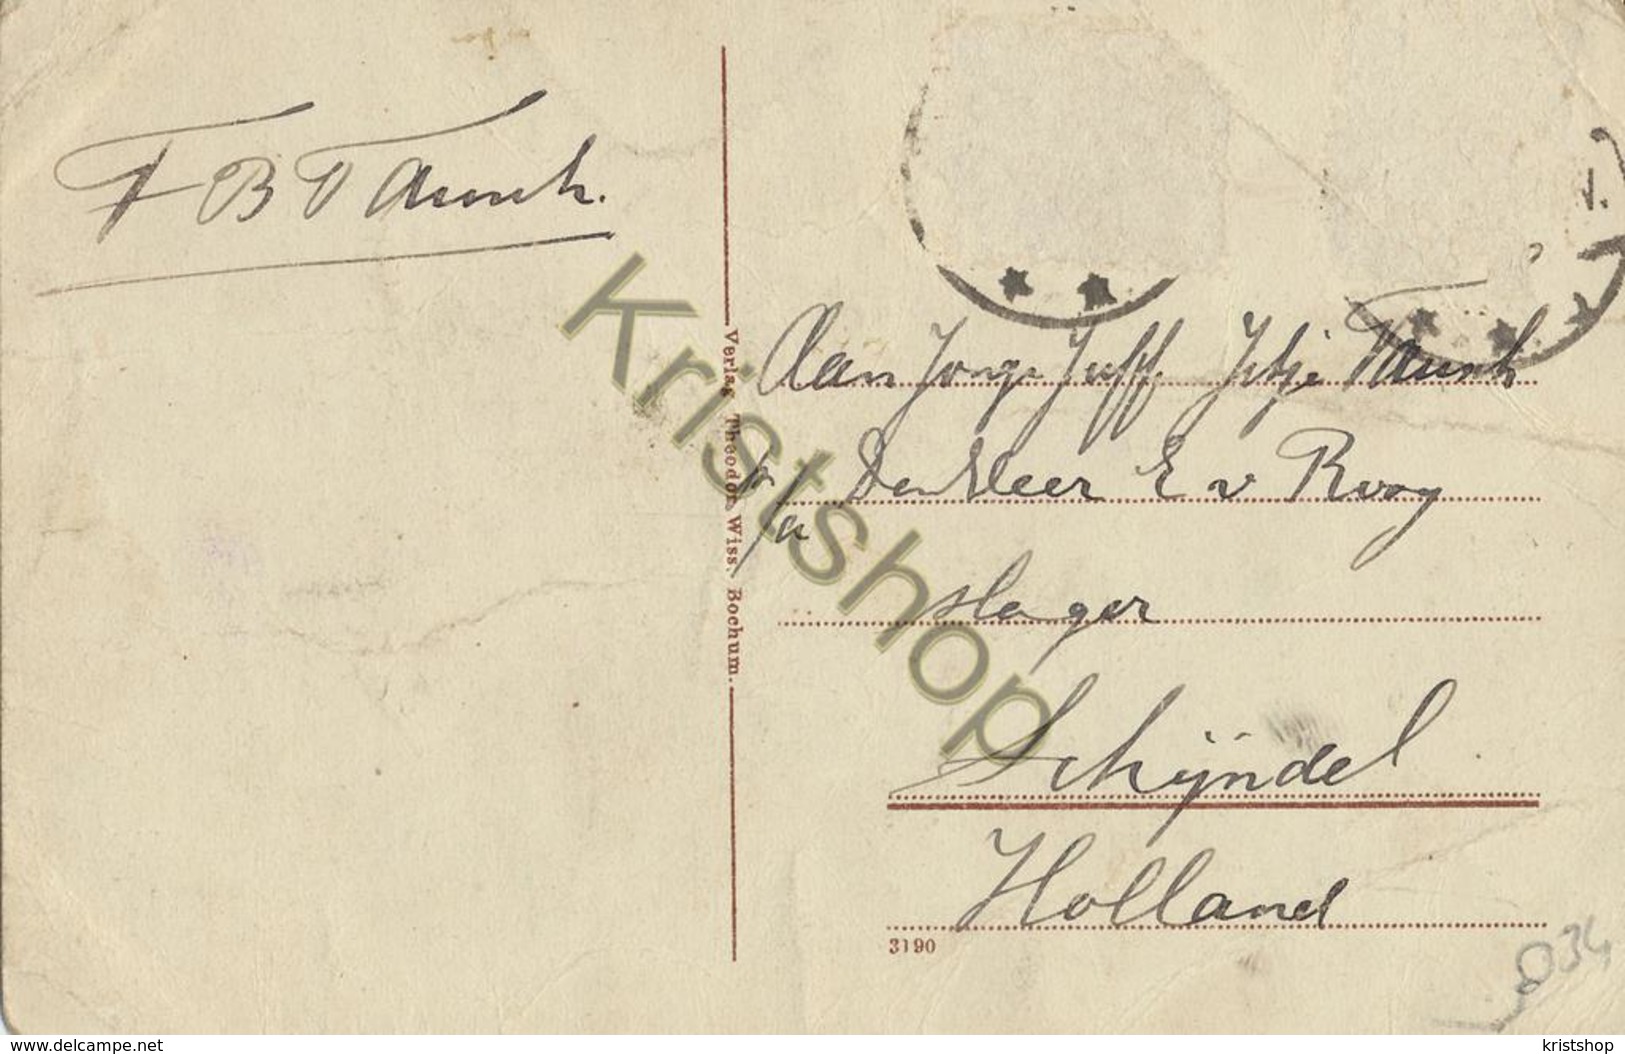 Aan Jonge Juff. Jetje
p/a Den Heer E v Rooy
slager
Schijndel
Holland
Verlag Theodor Wiss. Bochum.
3190
034
Kristshop
www.delcampe.net
kristshop